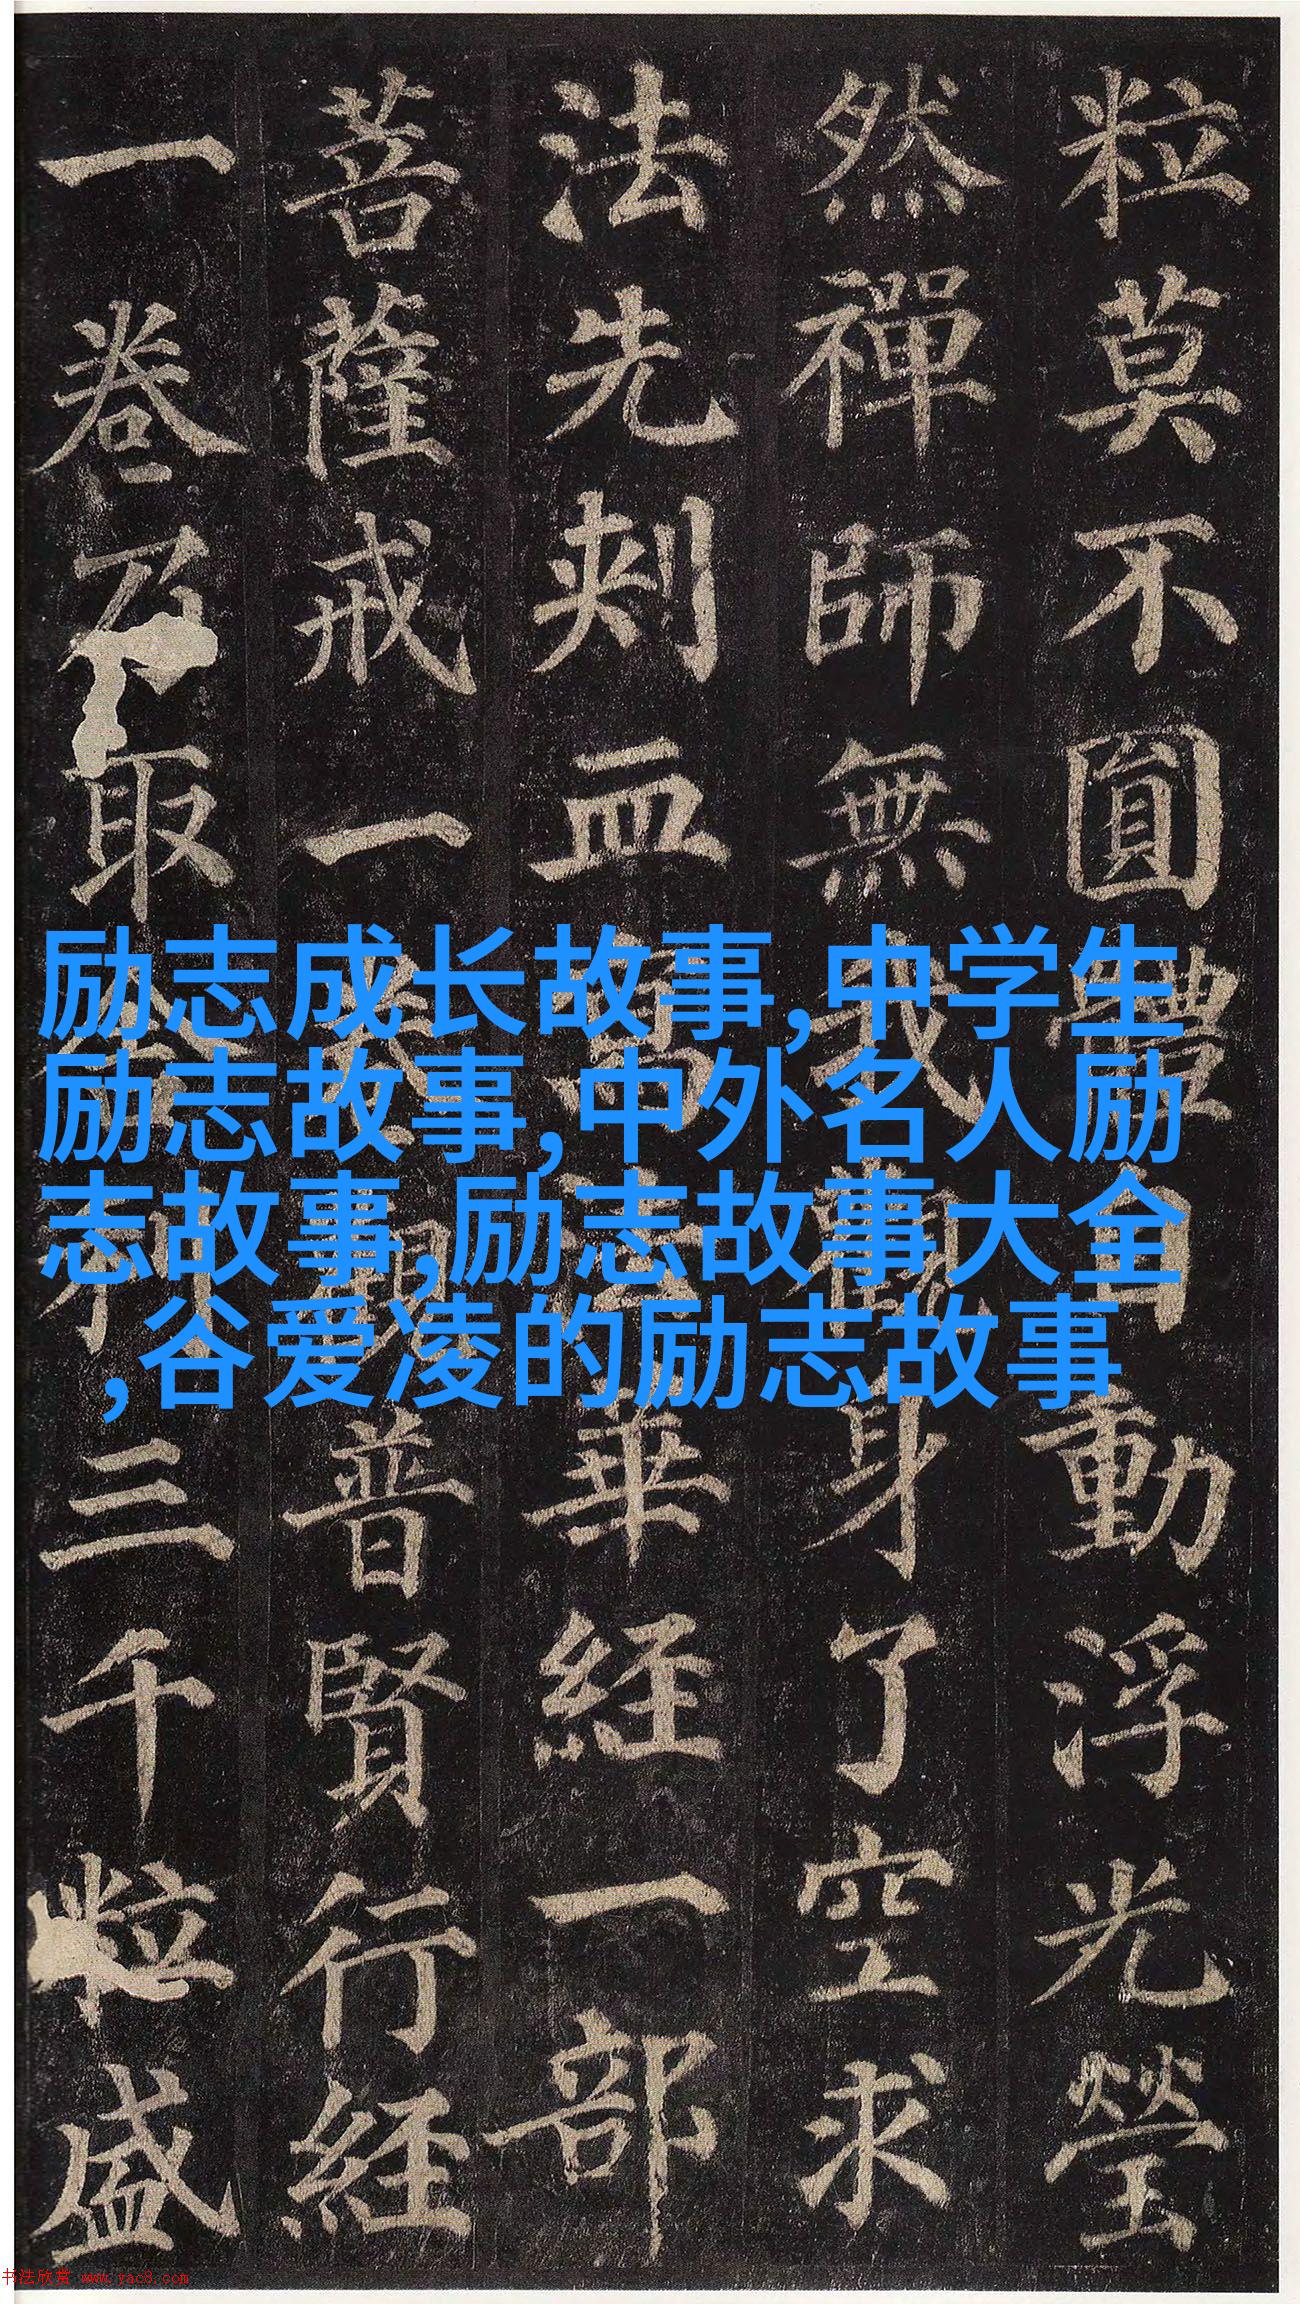 粒莫不圓體自動浮光瑩
然禪師無我觀身了空求
法先刾血寫法華経一部
菩薩戒一卷觀普賢行経
一卷乃取舍利三千粒盛
励志成长故事,中学生
励志故事,中外名人励
志故事,励志故事大全
,谷爱凌的励志故事
书法欣赏 www.yac8.com